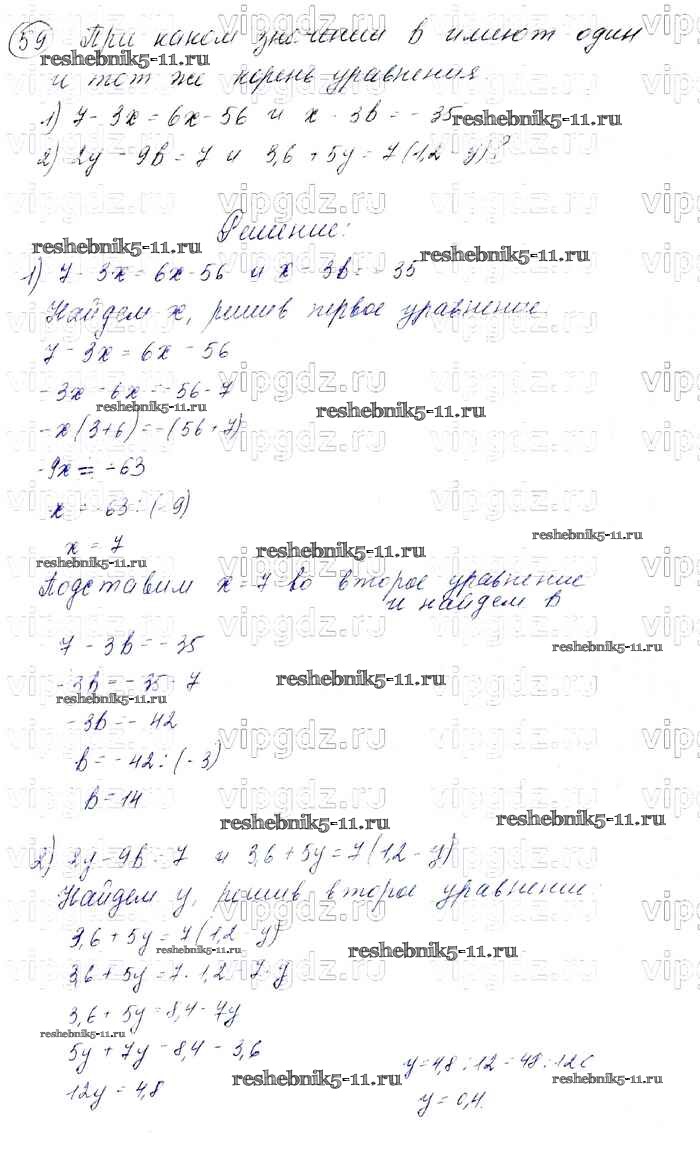 59 При каком значении b имеют один
и тот же корень уравнения
1) 7 - 3x = 6x - 56 и x - 3b = - 35
2) 2y - 9b = 7 и 3,6 + 5y = 7(1,2 - y)?
Решение:
1) 7 - 3x = 6x - 56 и x - 3b = - 35
Найдем x, решив первое уравнение.
7 - 3x = 6x - 56
- 3x - 6x = - 56 - 7
- x(3+6) = -(56+7)
- 9x = - 63
x = - 63 : (- 9)
x = 7
Подставим x = 7 во второе уравнение
и найдем b
7 - 3b = - 35
- 3b = - 35 - 7
- 3b = - 42
b = - 42 : (- 3)
b = 14
2) 2y - 9b = 7 и 3,6 + 5y = 7(1,2 - y)
Найдем y, решив второе уравнение:
3,6 + 5y = 7(1,2 - y)
3,6 + 5y = 7 · 1,2 - 7 · y
3,6 + 5y = 8,4 - 7y
5y + 7y = 8,4 - 3,6
12y = 4,8
y = 4,8 : 12 = 48 : 120
y = 0,4.
reshebnik5-11.ru
vipgdz.ru